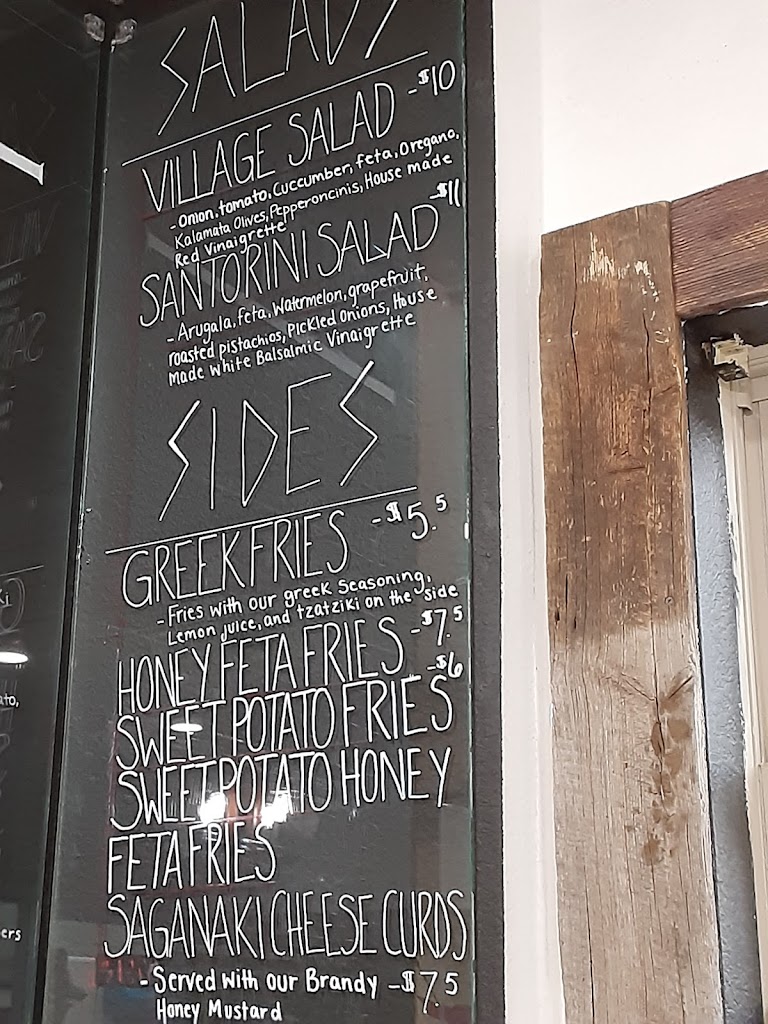 SALADS
VILLAGE SALAD -$10
- Onion, tomato, Cuccumber, feta, Oregano,
Kalamata Olives, Pepperoncinis, House made
Red Vinaigrette
SANTORINI SALAD -$11
- Arugala, feta, Watermelon, grapefruit,
roasted pistachios, Pickled Onions, House
Made White Balsalmic Vinaigrette
SIDES
GREEK FRIES -$5.5
- Fries with our greek seasoning,
Lemon juice, and tzatziki on the side
HONEY FETA FRIES -$7.5
SWEET POTATO FRIES -$6
SWEET POTATO HONEY
FETA FRIES
SAGANAKI CHEESE CURDS
- Served with our Brandy -$7.5
Honey Mustard